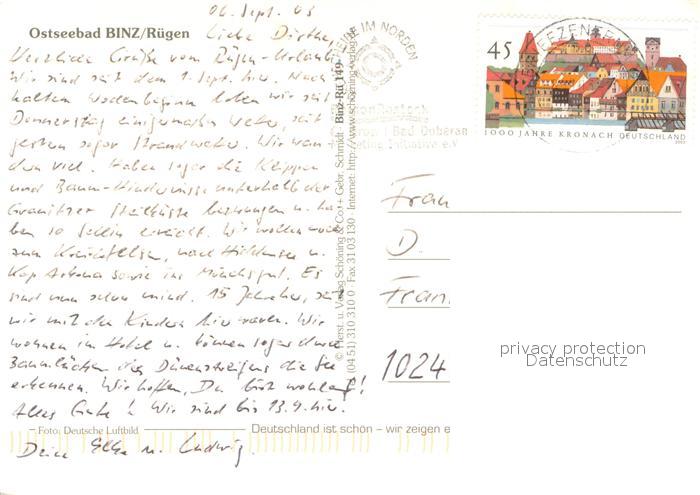 06. Sept. 03
Ostseebad BINZ/Rügen
Liebe Dörthe,
Herzliche Grüße vom Rügen-Urlaub!
Wir sind seit dem 1. Sept. hier. Nach
kaltem Wochenbeginn haben wir seit
Donnerstag einigermaßen Wetter, seit
gestern sogar Strandwetter. Wir wan-
dern viel. Haben sogar die Klippen
und Baum-Hindernisse unterhalb der
Granitzer Steilküste bezwungen u. ha-
ben so Sellin erreicht. Wir wollen noch
zum Königsstuhl, nach Hiddensee u.
Kap Arkona sowie ins Mönchgut. Es
sind nun schon mind. 15 Jahre her, seit
wir mit den Kindern hier waren. Wir
wohnen im Hotel u. können sogar durch
Baumlücken des Dünensteiges die See
erkennen. Wir hoffen, Du bist wohlauf!
Alles Gute! Wir sind bis 13.9. hier.
Foto: Deutsche Luftbild
Deutschland ist schön – wir zeigen e
Deine Elke u. Ludwig.
© Herst. u. Verlag Schöning & Co. + Gebr. Schmidt · Binz-Rü 149
Tel. (04 51) 310 310 0 · Fax 31 03 130 · Internet: http://www.schoening-verlag.de
IM NORDEN
Bad Doberan
Initiative e.V
45
1000 JAHRE KRONACH DEUTSCHLAND
2003
Frau
D.
Fran
1024
privacy protection
Datenschutz